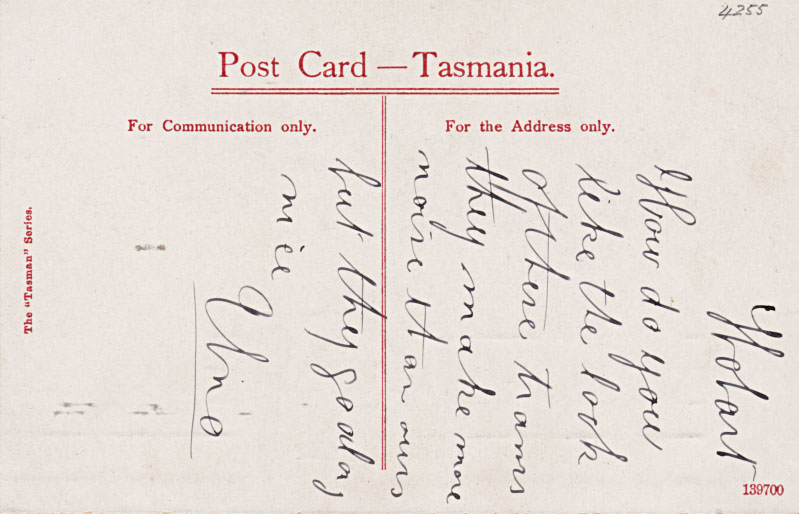 4255
Post Card — Tasmania.
For Communication only.
For the Address only.
The "Tasman" Series.
139700
Hobart
How do you
like the look
of these trams
they make more
noise than ours
but they go along
nice